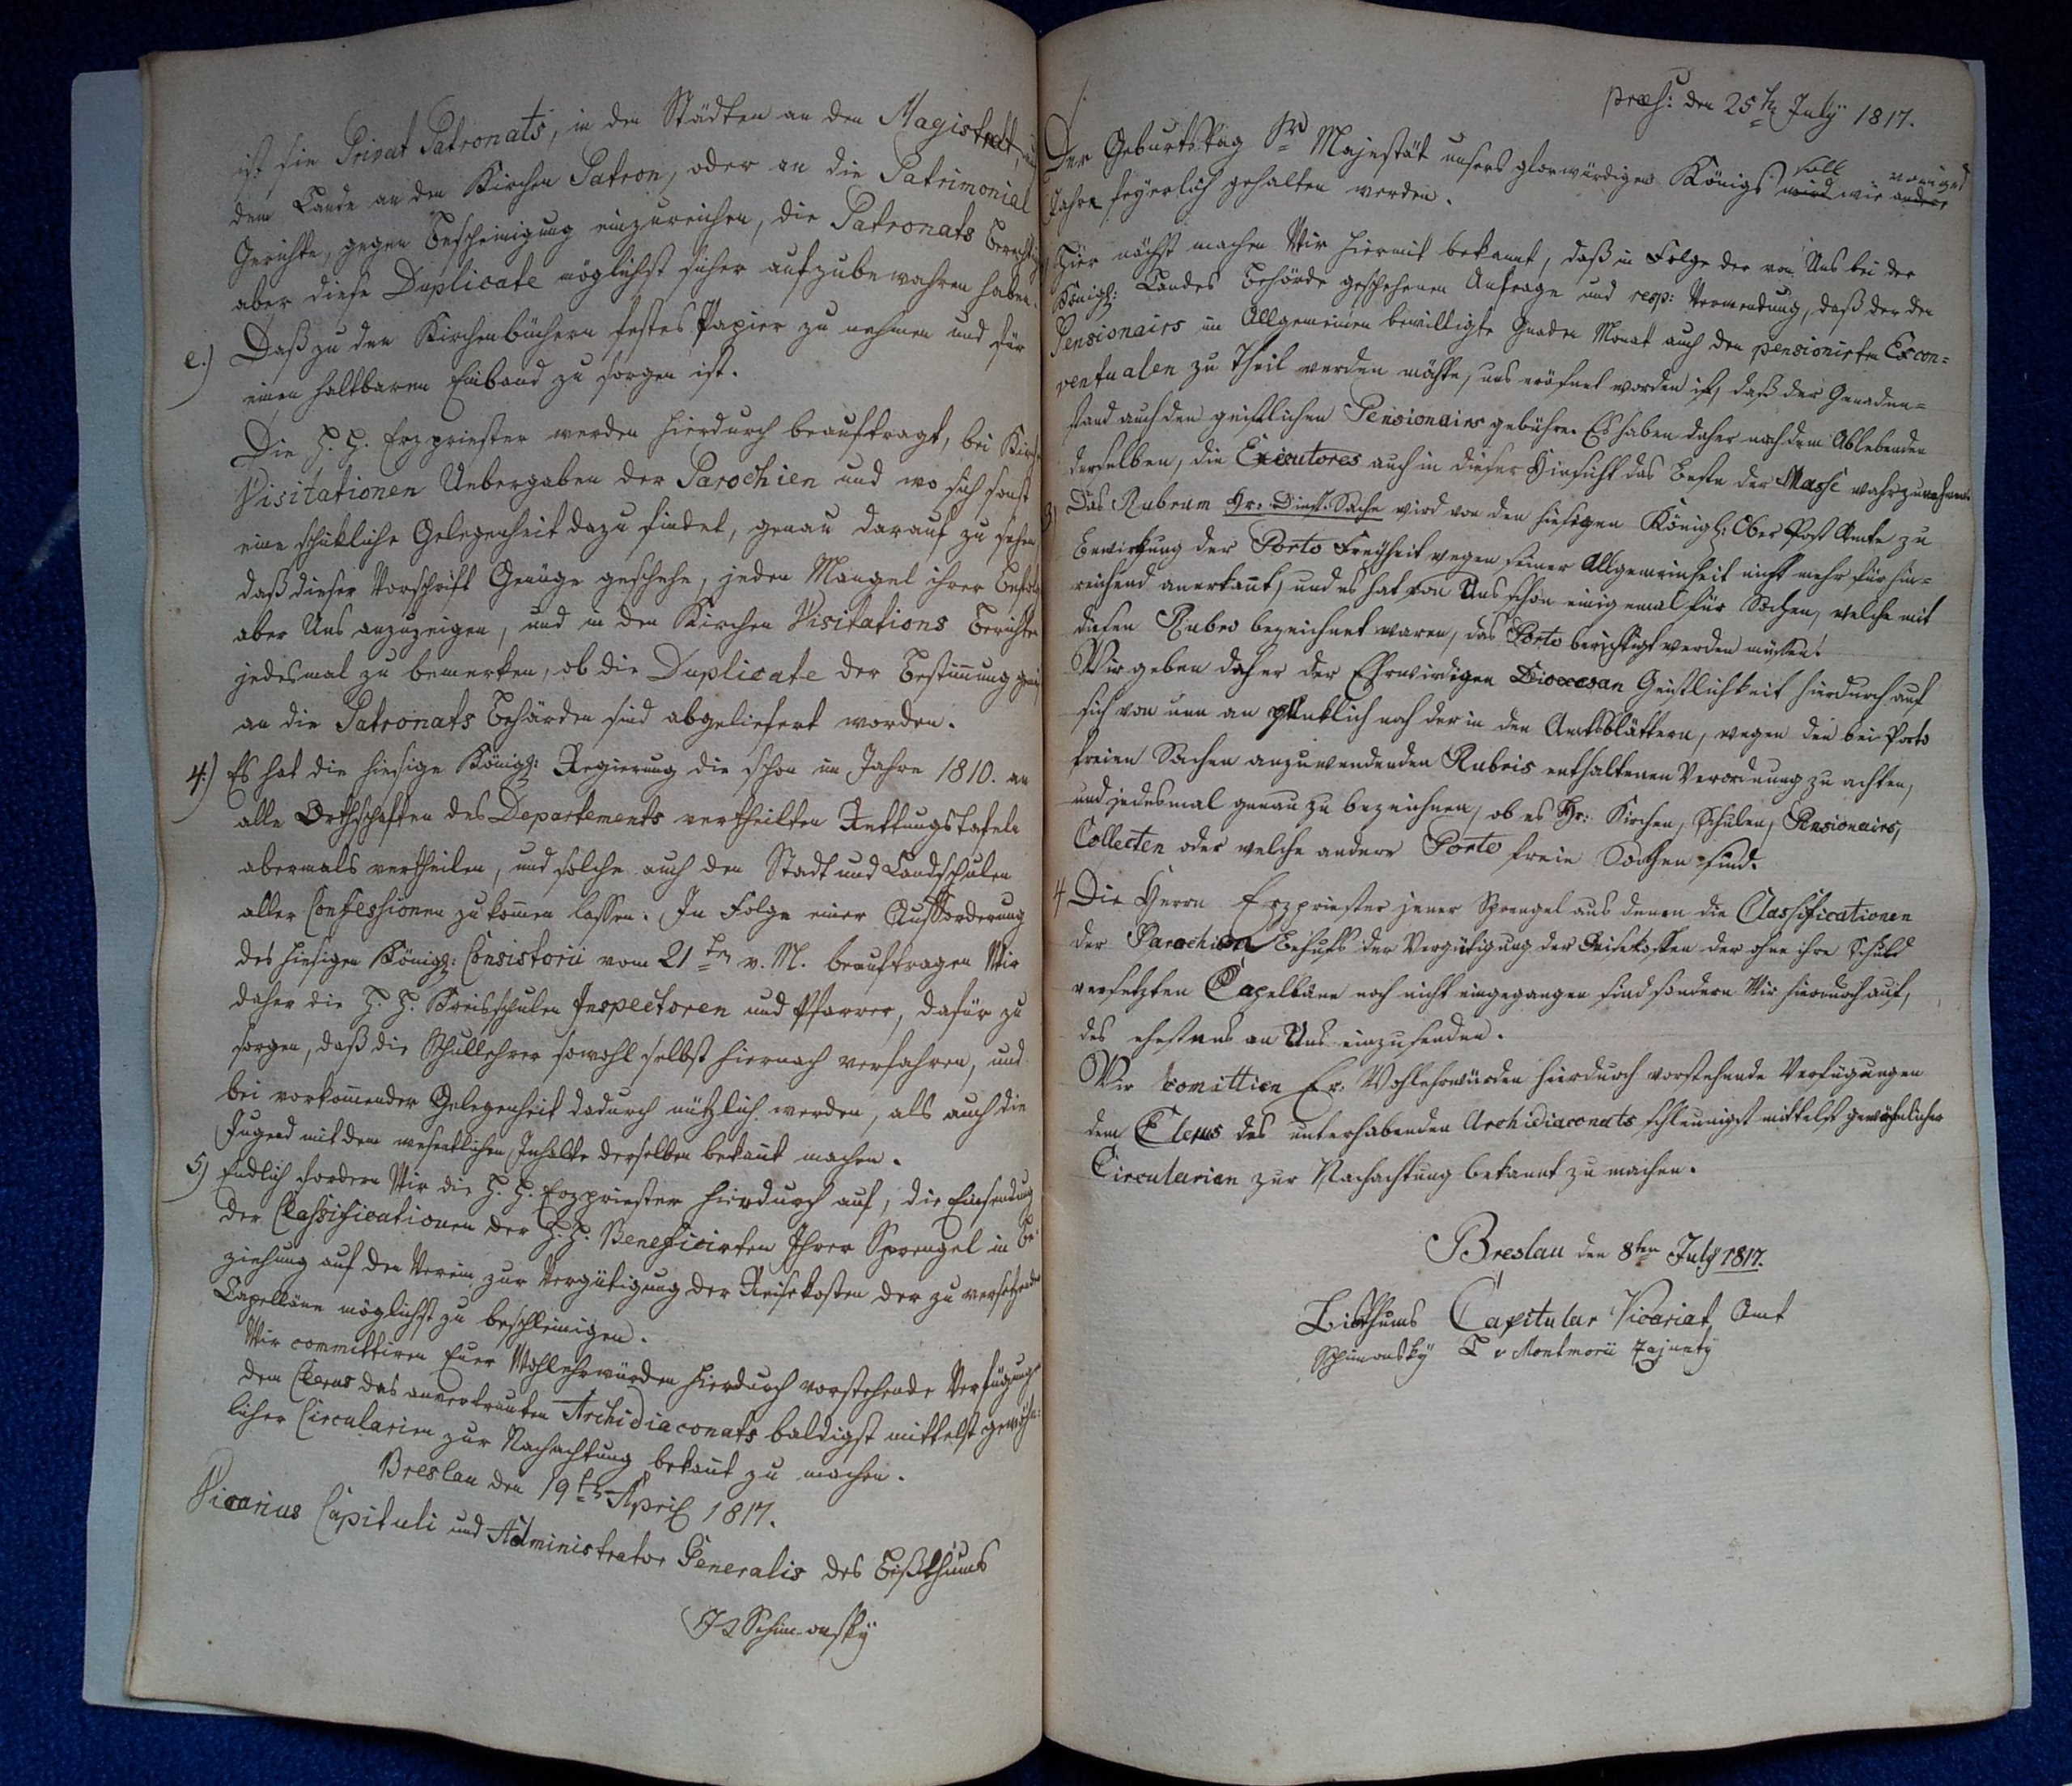 ist sie Privat Patronats, in den Städten an den Magistrat, auf
dem Lande an den Kirchen Patron, oder an die Patrimonial
Gerichte, gegen Bescheinigung einzureichen, die Patronats
aber diese Duplicate möglichst sicher aufzubewahren haben.
e.) Daß zu den Kirchenbüchern festes Papier zu nehmen und für
einen haltbaren Einband zu sorgen ist.
Die H. H. Erzpriester werden hierdurch beauftragt, bei
Visitationen Uebergaben der Parochien und wo sich sonst
eine schickliche Gelegenheit dazu findet, genau darauf zu sehen,
daß dieser Vorschrift Genüge geschehe, jeden Mangel ihrer
aber Uns anzuzeigen, und in den Kirchen Visitations Berichten
jedesmal zu bemerken, ob die Duplicate der Bestimung
an die Patronats Behörden sind abgeliefert worden.
4.) Es hat die hiesige Königl: Regierung die schon im Jahre 1810. an
alle Orthschaften des Departements vertheilten Rettungstafeln
abermals vertheilen, und solche auch den Stadt und Landschulen
aller Confessionen zukomen lassen. In Folge einer Aufforderung
des hiesigen Königl: Consistorii vom 21ten v. M. beauftragen Wir
daher die H. H. Kreisschulen Inspectoren und Pfarrer, dafür zu
sorgen, daß die Schullehrer sowohl selbst hiernach verfahren, und
bei vorkomender Gelegenheit dadurch nützlich werden, als auch die
Jugend mit dem wesentlichen Inhalte derselben bekant machen.
5) Endlich fordern Wir die H. H. Erzpriester hierdurch auf, die Einsendung
der Classificationen der H. H. Beneficirten Ihrer Sprengel in Be-
ziehung auf den Verein zur Vergütigung der Reisekosten der zu versetzenden
Capelläne möglichst zu beschleinigen.
Wir committiren Euer Wohlehrwürden hierdurch vorstehende Verfügungen
dem Clerus des anvertrauten Archidiaconats baldigst mittelst gewöhn-
licher Circularien zur Nachachtung bekant zu machen.
Breslau den 19ten April 1817.
Vicarius Capituli und Administrator Generalis des Bißthums
Schimonsky
præs: den 25ten July 1817.
Der Geburtstag Sr Majestät unsers glorwürdigen Königs soll wird wie voriges andere
Jahre feyerlich gehalten werden.
Hier nächst machen Wir hiermit bekannt, daß in Folge der von Uns bei der
Königl: Landes Behörde geschehenen Anfrage und resp: Verwendung, daß der den
Pensionairs im Allgemeinen bewilligte Gnaden Monat auch den pensionirten Excon=
ventualen zu Theil werden möchte, uns eröfnet worden ist, daß der Gnaden=
auch den geistlichen Pensionairs gebühre. Es haben daher nach dem Ableben
derselben, die Executores auch in dieser Hinsicht das Beste der Masse wahrzunehmen
3) Das Rubrum Hr: Dinst. Sache wird von den hiesigen Königl: Ober Post Amte zu
Bewirkung der Porto Freyheit wegen seiner Allgemeinheit nicht mehr für hin=
reichend anerkant, und es hat von Uns schon einig emal für Sachen, welche mit
diesen Rubro bezeichnet waren, das Porto berichtigt werden müssen.
Wir geben daher der Ehrwirdigen Dioecesan Geistlichkeit hierdurch auf
sich von nun an pünktlich nach der in den Amtsblättern, wegen den bei Porto
freien Sachen anzuwendenden Rubris enthaltenen Verordnung zu achten,
und jedesmal genau zu bezeichnen, ob es Hr: Kirchen, Schulen, Pensionairs,
Collecten oder welche andere Porto freie Sachen sind.
4 Die Herrn Erzpriester jener Sprengel aus denen die Classificationen
der Parochien Behufs der Vergütigung der Reisekosten der ohne ihre Schuld
versetzten Capelläne noch nicht eingegangen sind fordern Wir hierdurch auf,
des ehestens an Uns einzusenden.
Wir comittien Er. Wohlehrwürden hierdurch vorstehende Verfügungen
dem Clerus des unterhabenden Archidiaconats schleunigst mittelst gewöhnlicher
Circularien zur Nachachtung bekannt zu machen.
Breslau den 8ten July 1817.
Bisthums Capitular Vicariat Amt
Schimonsky v Montmorii